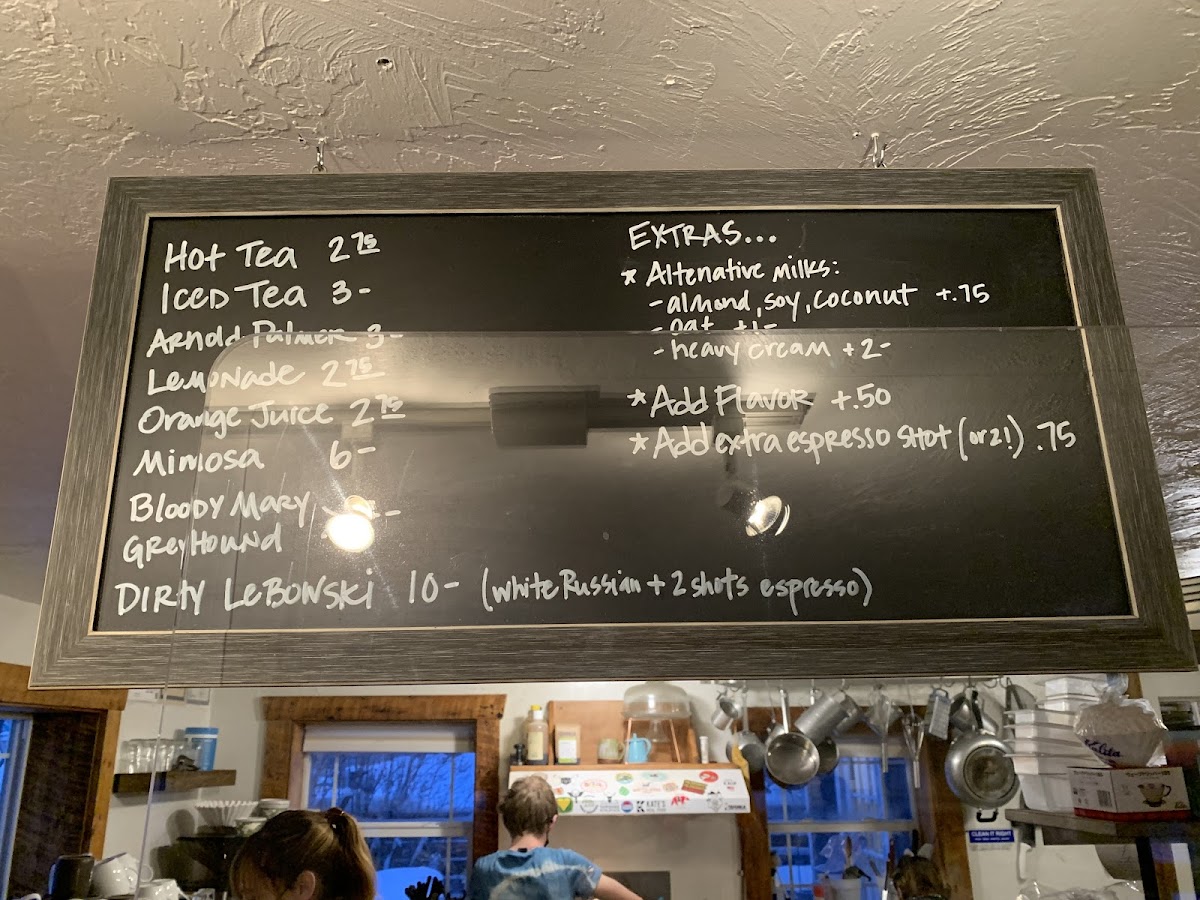 Hot Tea 2 75
Iced Tea 3-
Arnold Palmer 3-
Lemonade 2 75
Orange Juice 2 75
Mimosa 6-
Bloody Mary -
Greyhound
Dirty Lebowski 10- (white Russian + 2 shots espresso)
EXTRAS...
* Altenative milks:
- almond, soy, coconut +.75
- oat +1-
- heavy cream +2-
* Add Flavor +.50
* Add extra espresso shot (or 2!) .75
KATE'S
Kalita
CLEAN IT RIGHT